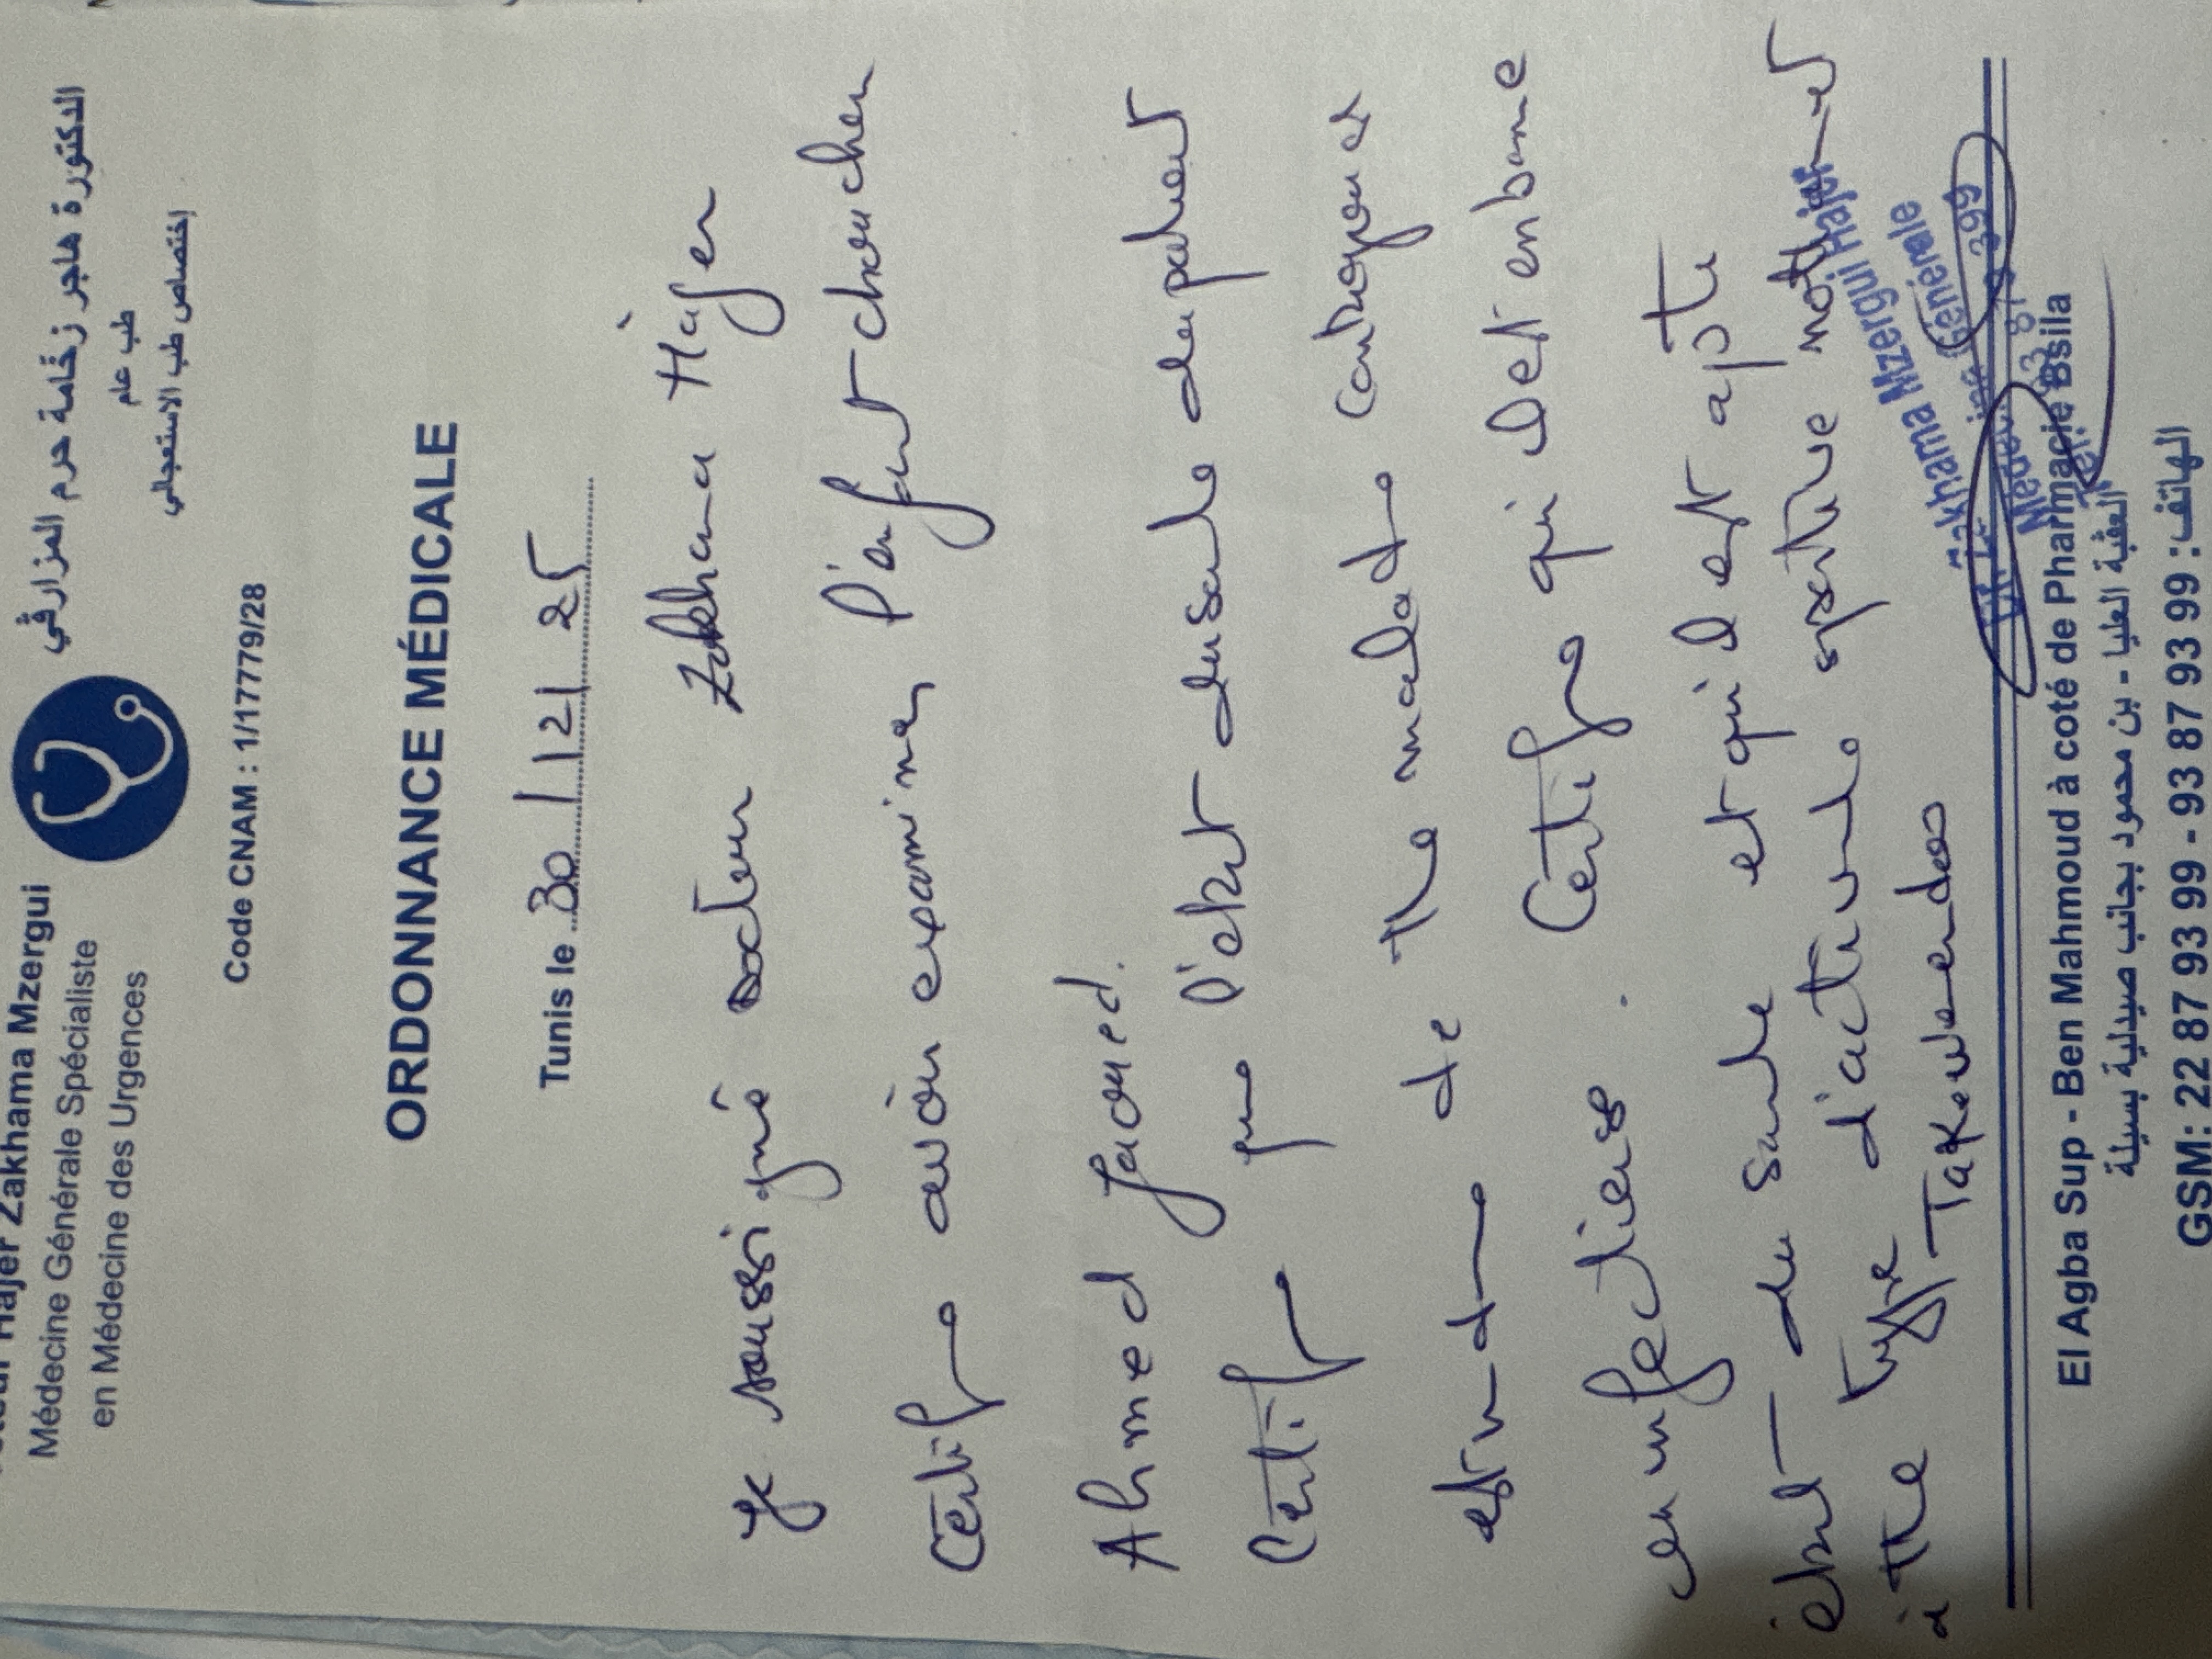 Hajer Zakhama Mzergui
Médecine Générale Spécialiste
en Médecine des Urgences
الدكتورة هاجر زخامة حرم المزارقي
طب عام
إختصاص طب الاستعجالي
Code CNAM : 1/17779/28
ORDONNANCE MÉDICALE
Tunis le 30/12/25
Je soussigné Docteur Zakhama Hajer
Certifie avoir examiner l'enfant chouchen
Ahmed Jaoued.
Certifie que l'etat de santé du patient
est indemne de tte maladie contagieuse
ou infectieuse. Certifie qu'il est en bonne
état de santé et qu'il est apte
à tte type d'activité sportive notamment
Takewendoo
Dr. Zakhama Mzergui Hajer
Médecine Générale
El Agba Sup - Ben Mahmoud à coté de Pharmacie Bsila
العقبة العليا - بن محمود بجانب صيدلية بسيلة
GSM: 22 87 93 99 - 93 87 93 99 :الهاتف